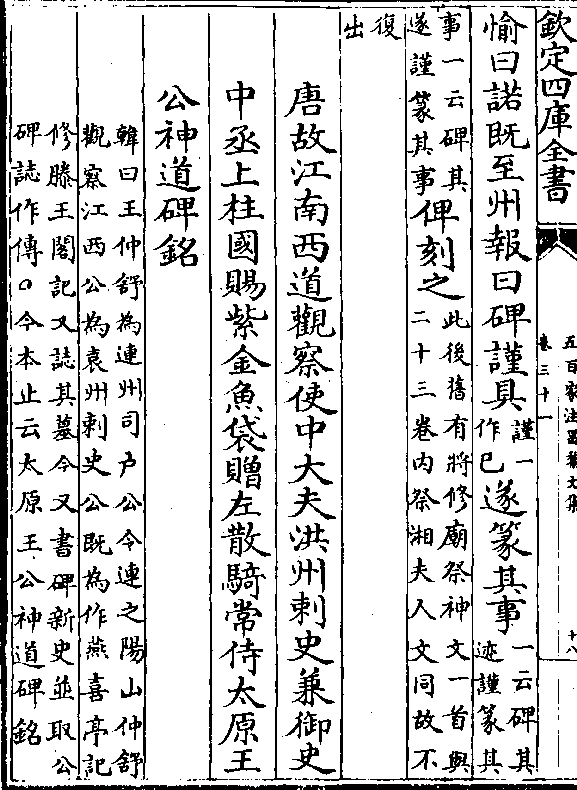 欽定四庫全書
五百家注昌黎文集
卷三十一
十八
愉曰諾既至州報曰碑謹具
謹一
作已
遂篆其事
一云碑其
迹謹篆其
事一云碑其
遂謹篆其事
俾刻之
此後舊有將修廟祭神文一首與
二十三卷内祭湘夫人文同故不
復
出
唐故江南西道觀察使中大夫洪州刺史兼御史
中丞上柱國賜紫金魚袋贈左散騎常侍太原王
公神道碑銘
韓曰王仲舒為連州司户公令連之陽山仲舒
觀察江西公為袁州刺史公既為作燕喜亭記
修滕王閣記又誌其墓今又書碑新史並取公
碑誌作傳○今本止云太原王公神道碑銘